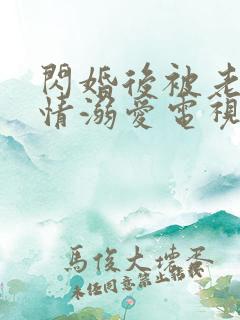 閃婚後被老
情溺愛電視
馬俊大壞蛋
未经同意禁止转载